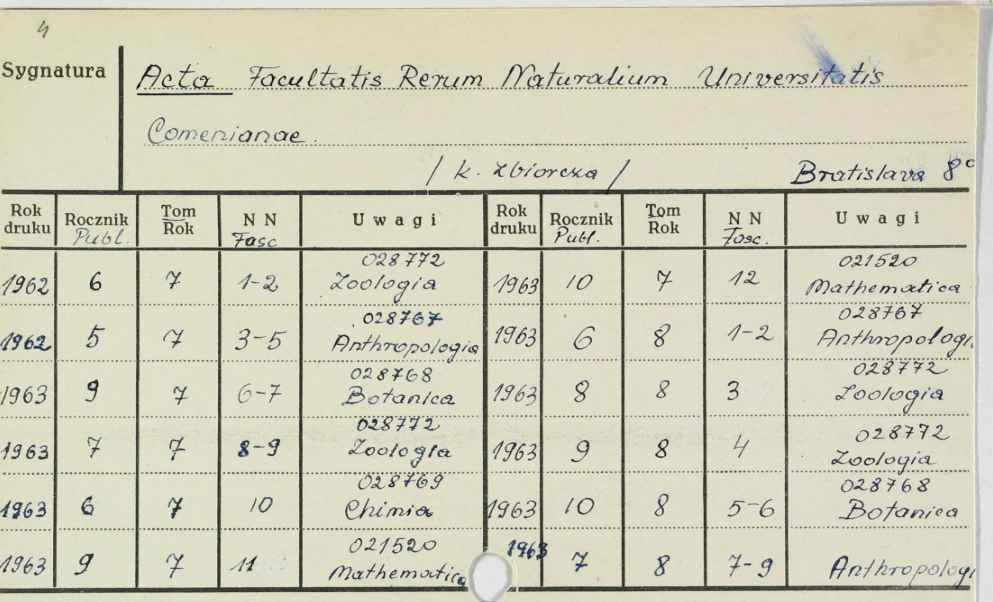 4
Sygnatura
Acta Facultatis Rerum Naturalium Universitatis
Comenianae.
/ k. zbiorcza / Bratislava 8°
Rok druku Rocznik Publ. Tom Rok N N Fasc Uwagi Rok druku Rocznik Publ. Tom Rok N N Fasc. Uwagi
1962 6 7 1-2 028772 Zoologia 1963 10 7 12 021520 Mathematica
1962 5 7 3-5 028767 Anthropologia 1963 6 8 1-2 028767 Anthropologi
1963 9 7 6-7 028768 Botanica 1963 8 8 3 028772 Zoologia
1963 7 7 8-9 028772 Zoologia 1963 9 8 4 028772 Zoologia
1963 6 7 10 028769 Chimia 1963 10 8 5-6 028768 Botanica
1963 9 7 11 021520 Mathematica 1963 7 8 7-9 Anthropologi